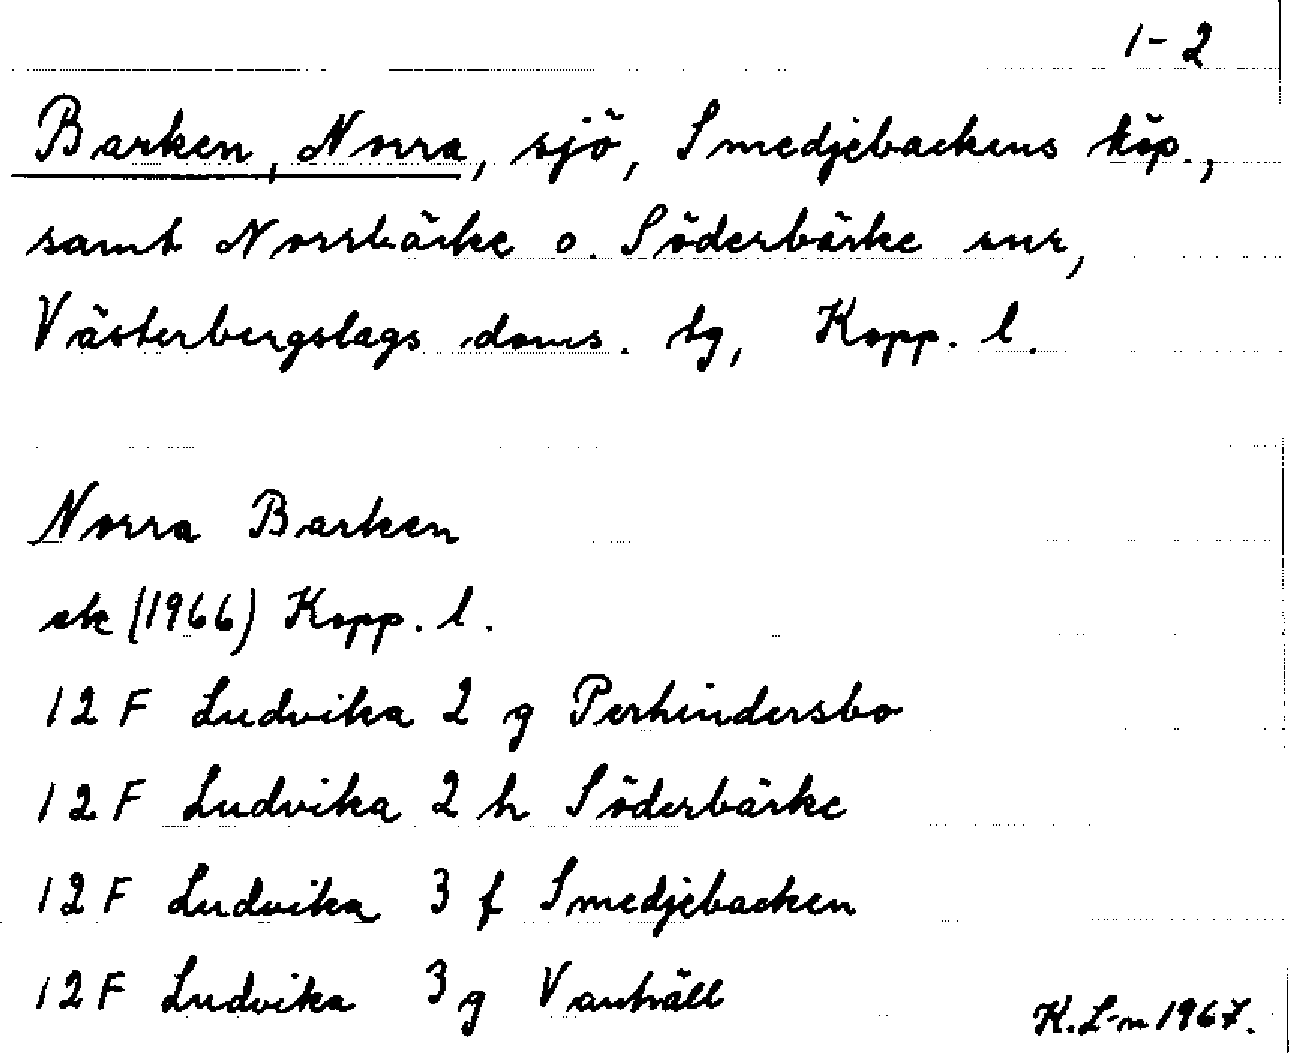 1-2
Barken, Norra, sjö, Smedjebackens köp.,
samt Norrbärke o. Söderbärke snr,
Västerbergslags doms. tg, Kopp. l.
Norra Barken
ek (1966) Kopp. l.
12 F Ludvika 2 g Perhindersbo
12 F Ludvika 2 h Söderbärke
12 F Ludvika 3 f Smedjebacken
12 F Ludvika 3 g Vanhäll
K.L-m 1967.